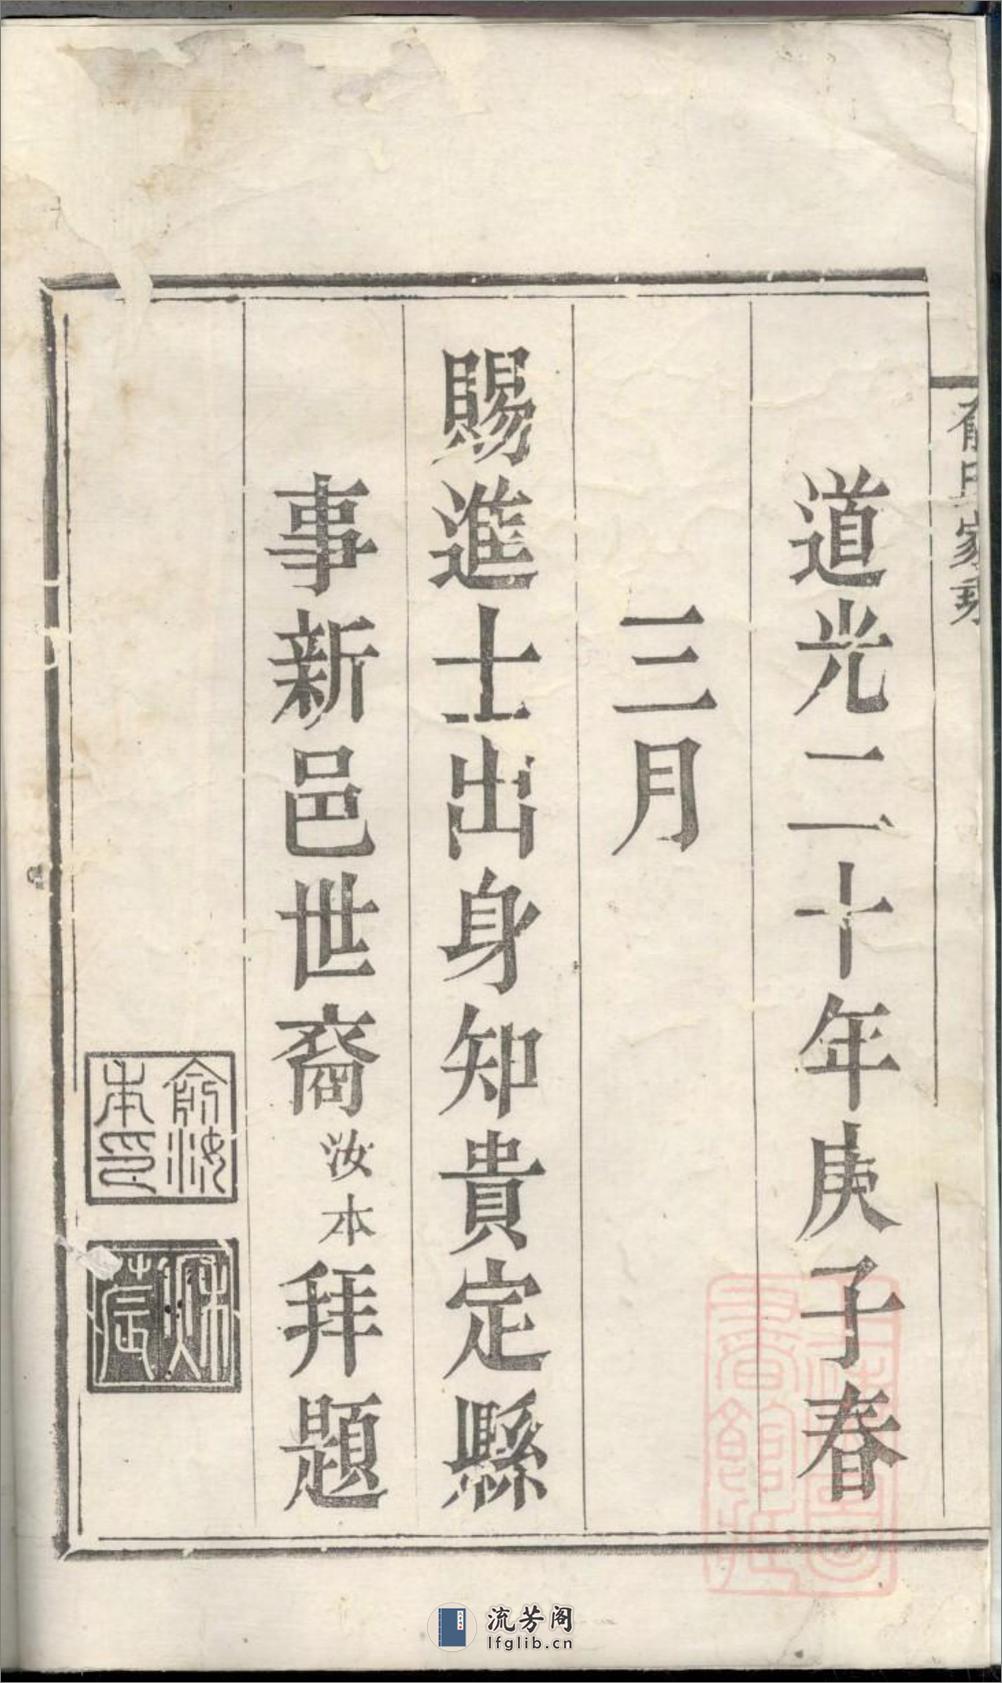 道光二十年庚子春
三月
賜進士出身知貴定縣
事新邑世裔汝本拜題
俞汝本印
俞氏家乘
流芳阁
lfglib.cn